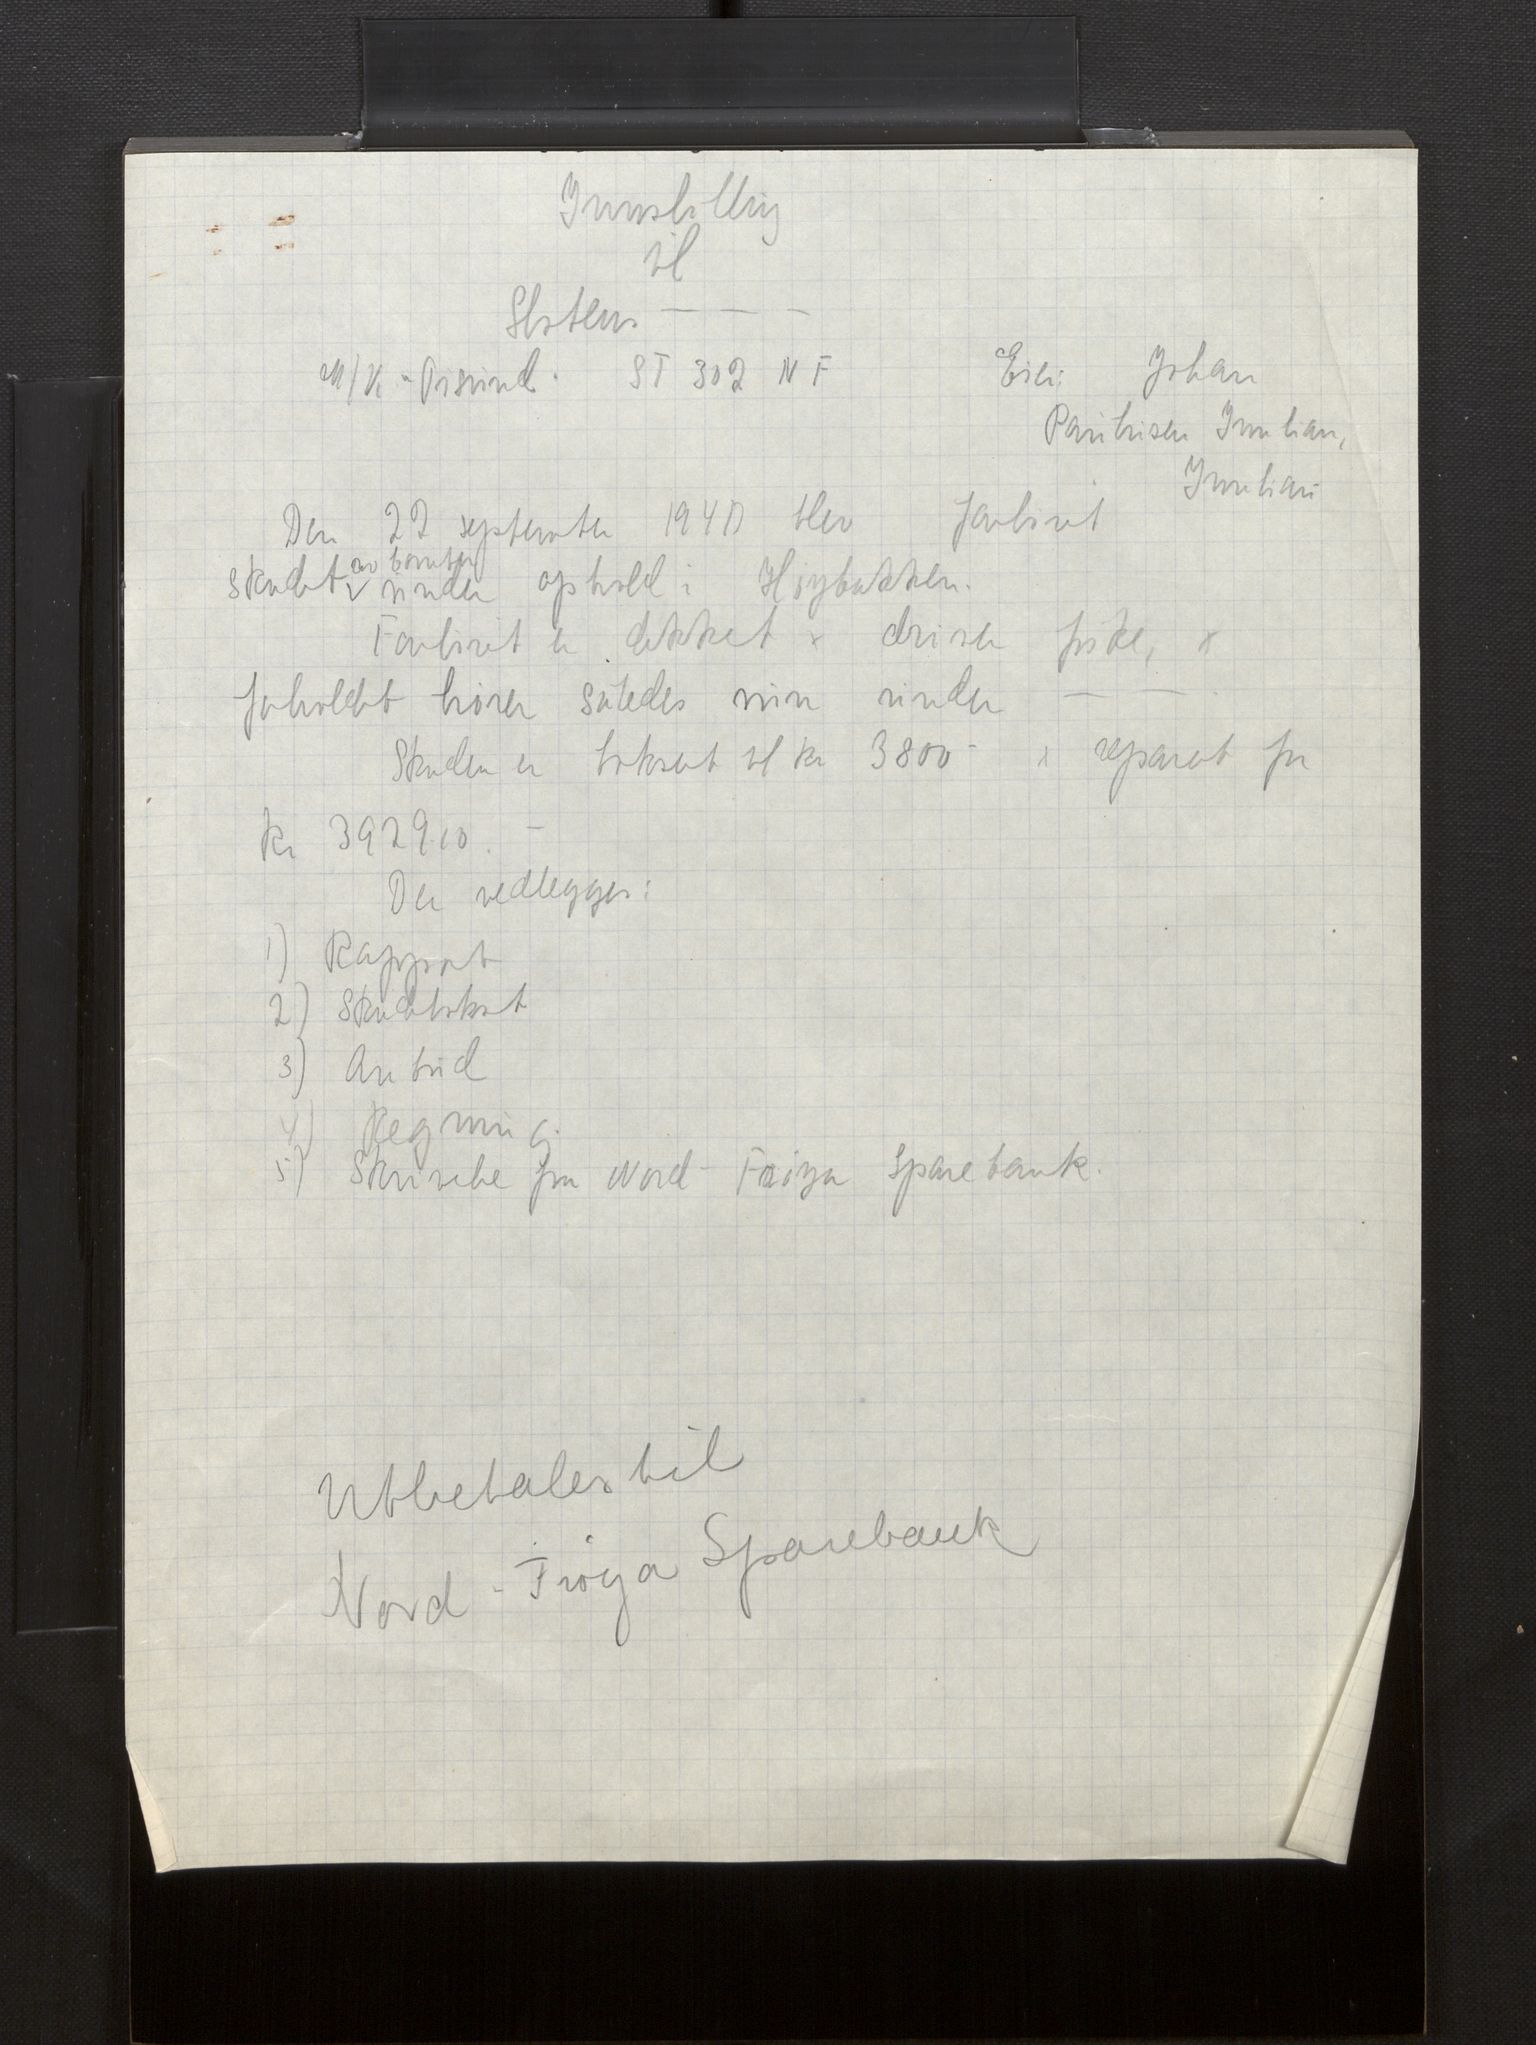 Innstilling
til
Statens — — —
M/K "Disund" ST 302 NF Eier: Johan
Paulusen Inntian,
Inntian
Den 22 september 1940 blev fartøiet
skadet av bomber under ophold i Høybakken.
Fartøiet er dekket & driver fiske, &
forholdet hører således inn under — —
Skaden er taksert til kr 3800- & reparert for
kr 3929.10. —
Der vedlegges:
1) Rapport
2) Skadetakst
3) Anbud
4) Regning
5) Skrivelse fra Nord-Frøya Sparebank.
Utbetales til
Nord-Frøya Sparebank